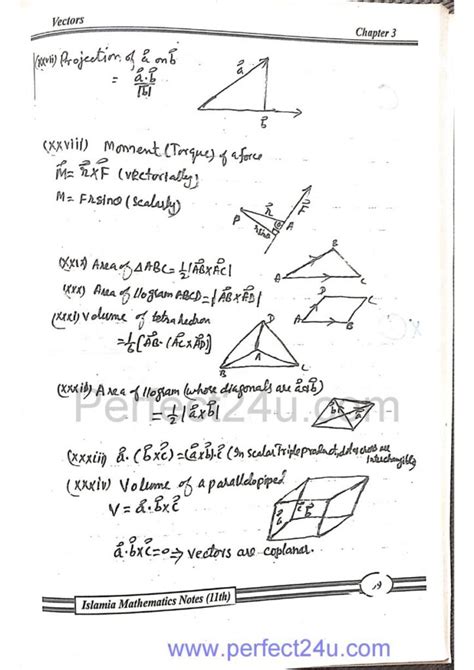 Vectors
Chapter 3
(xxvii) Projection of a⃗ on b⃗
= a⃗.b⃗ / |b⃗|
a⃗
b⃗
(xxviii) Moment (Torque) of a force
M⃗ = r⃗ x F⃗ (vectorially)
M = Frsinθ (scalarly)
P
r⃗
F⃗
A
rsinθ
θ
(xxix) Area of ΔABC = 1/2 |A⃗B x A⃗C|
A
B
C
(xxx) Area of llogram ABCD = |A⃗B x A⃗D|
D
C
A
B
(xxxi) Volume of tetrahedron
= 1/6 [A⃗B . (A⃗C x A⃗D)]
D
A
B
C
(xxxii) Area of llogram (whose diagonals are a⃗ & b⃗)
= 1/2 |a⃗ x b⃗|
b⃗
a⃗
Perfect24u.com
(xxxiii) a⃗ . (b⃗ x c⃗) = (a⃗ x b⃗) . c⃗ (In scalar Triple product, dot & cross are
interchangible)
(xxxiv) Volume of a parallelopiped
V = a⃗ . b⃗ x c⃗
a⃗ . b⃗ x c⃗ = 0 => vectors are coplanar.
Islamia Mathematics Notes (11th)
www.perfect24u.com